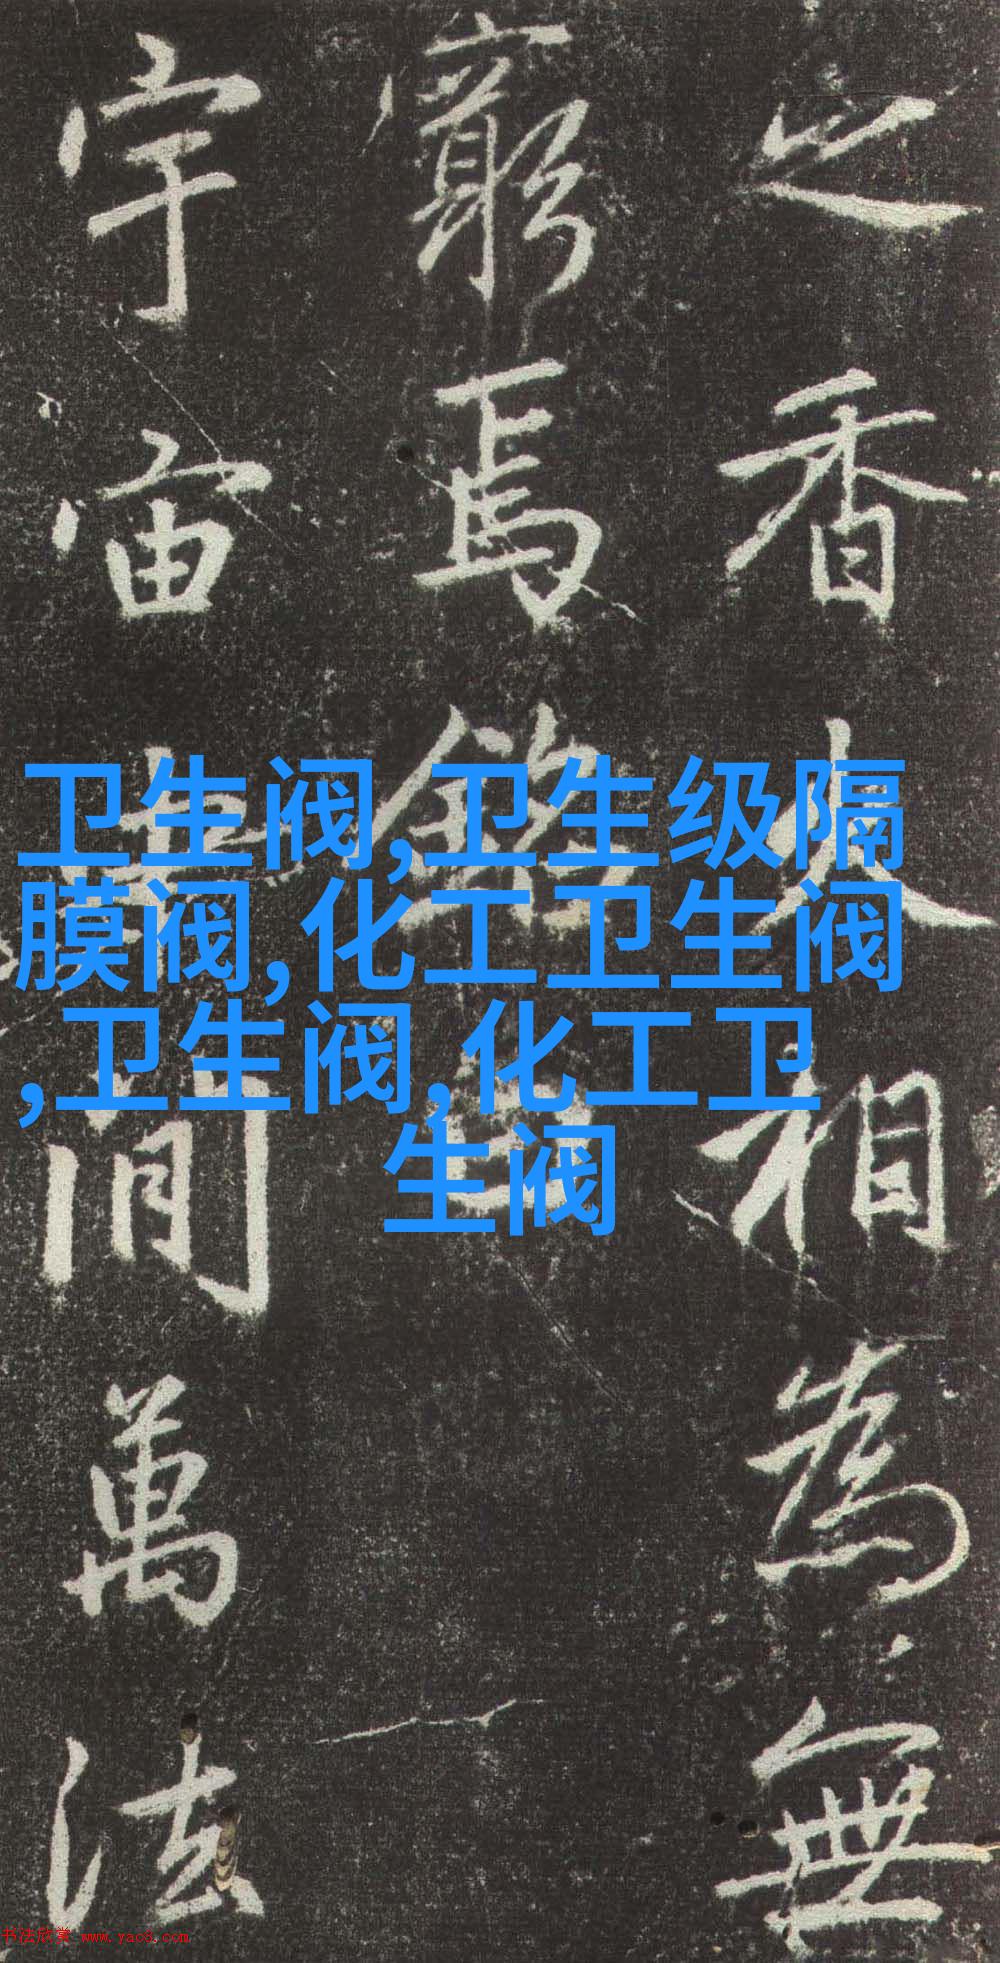 之香火相為無
窮焉銘曰
宇宙間萬法
卫生阀,卫生级隔
膜阀,化工卫生阀
,卫生阀,化工卫
生阀
书法欣赏 www.yac8.com